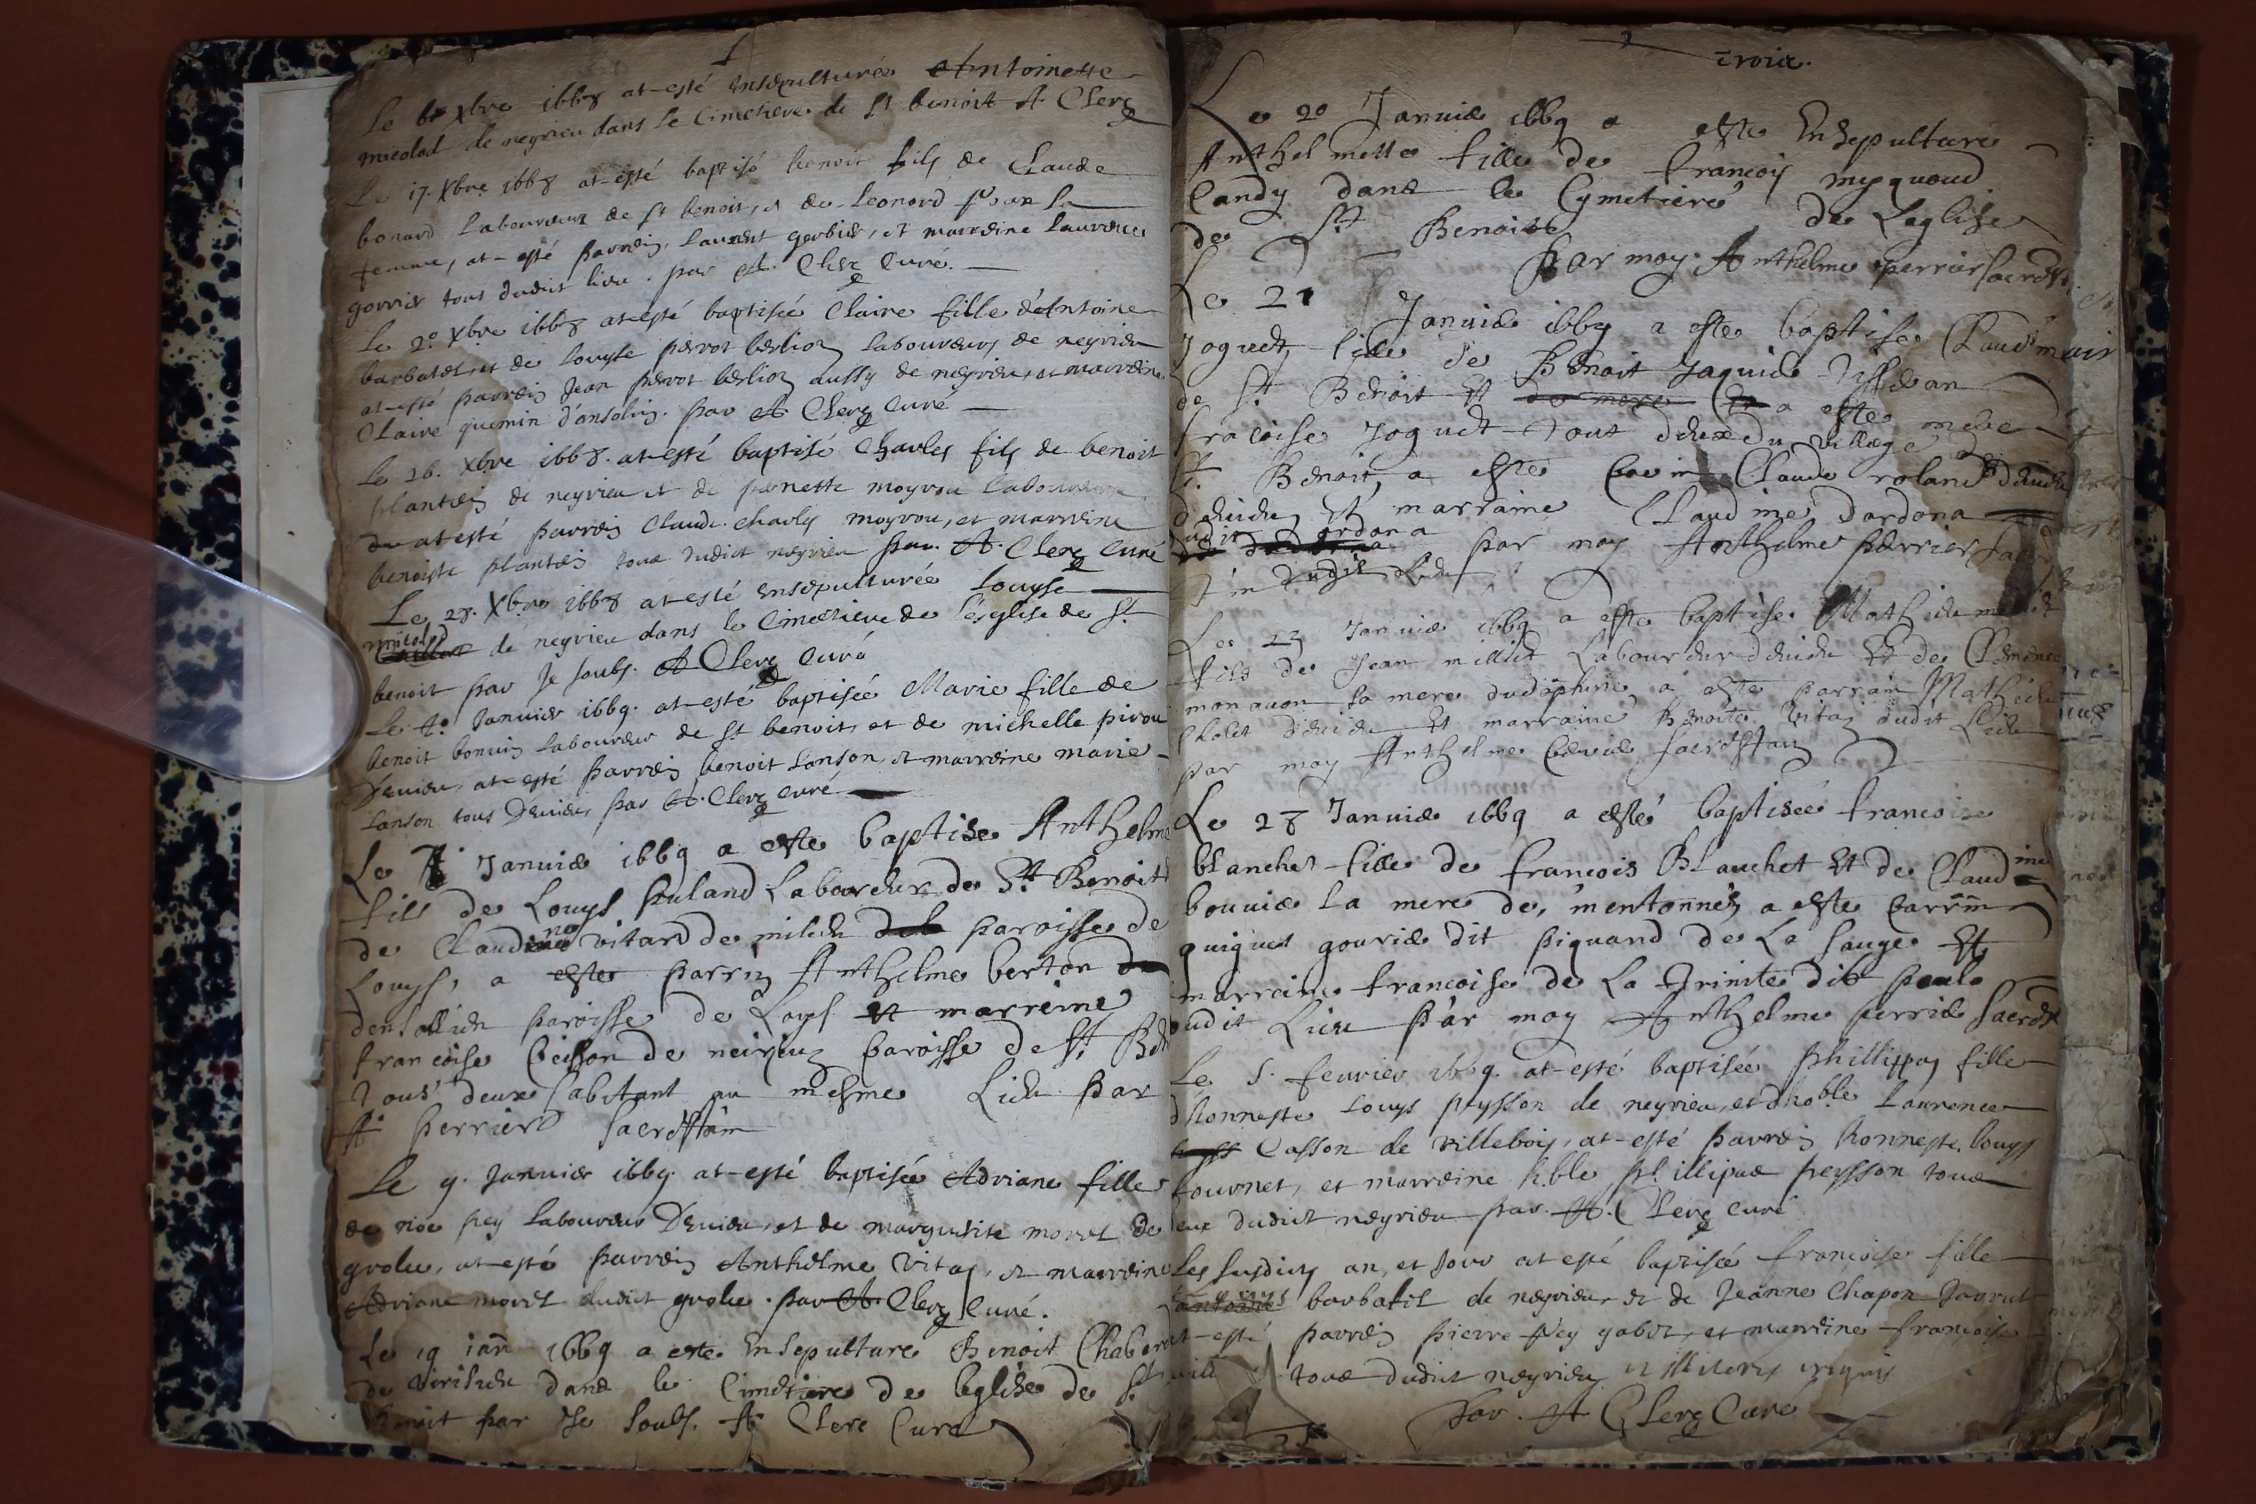 Le 6e Xbre 1668 at esté ensepulturée Antoinette
micolod de neyrieu dans le Cimetiere de st benoit A Clerc
Le 17. Xbre 1668 at esté baptisé benoit fils de Claude
bonard laboureur de st benoit, et de Leonord sa
femme, at esté parrein laurent gerbier, et marreine laurence
gorrier tous dudict lieu. par A. Clerc curé.
Le 20 Xbre 1668 at esté baptisée Claire fille d'Antoine
barbatel, et de louyse perrot berlioz laboureurs de neyrieu
at esté parrein Jean perrot berlioz aussy de neyrieu, et marreine
Claire guemin d'ansolin. par A. Clerc curé
Le 26. Xbre 1668. at esté baptisé Charles fils de benoit
plantein de neyrieu et de pernette moyrou laboureurs
du at esté parrein Claude Charles moyrou, et marreine
benoiste plantein tous dudict neyrieu par. A. Clerc curé
Le 28. Xbre 1668 at esté ensepulturée louyse
micolod de neyrieu dans le Cimetiere de l'esglise de St
benoit par Je soubs. A Clerc curé
Le 4e Janvier 1669. at esté baptisée Marie fille de
benoit bonnin laboureur de St benoit, et de michelle pirou
d'euieu, at esté parrein benoit Lanson, et marreine marie
Lanson tous d'euieu, par A. Clerc curé
Le 7 Januie 1669 a este baptise Anthelme
fils de Louys puland Laboureur de St Benoit
de Claudine vitard de milieu paroisse de
Louyss, a este parrin Anthelme berton
densollieu paroisse de Loys et marreine
francoise peisson de neirieu paroisse de St Be
tous deux habitant au mesme Lieu par
A. perrier sacristain
Le 9. Janvier 1669. at esté baptisée Adriane fille
de nioe pey laboureur D'euieu, et de marguerite morel de
grolee, at esté parrein Anthelme vitoz, et marreine
Adriane morel dudict grolee. par A. Clerc curé.
Le 19 ian 1669 a este Ensepulture Benoit Chaber
de virisieu dans le Cimetiere de leglise de St
Benoit par Je soubs. A Clerc Curé
2
troix.
Le 20 Januie 1669 a este Ensepulture
Anthelmette fille de francois myquoud
Candy dans le Cymetiere de Leglise
de St Benoist
par moy Anthelme perrier sacrist
Le 21 Januie 1669 a este baptise Claud
Joguet fille de Benoit Jaquie
de St Benoit et de mere a este mere
fracoise Joguet tout deux du village
St. Benoit, a este parin Claude roland deuieu
deuieu Et marraine Claudine dardona
par moy Anthelme perrier
dudit Lieu
Le 23 Januie 1669 a este baptise Mathieu
fils de Jean milliet Laboureur deuieu Et de Clemence
monauon sa mere dudophine a este parrain Mathieu
Cholet deuieu Et marraine benoite vitoz dudit Lieu
par moy Anthelme perrie sacristain
Le 28 Januie 1669 a esté baptisée francoise
blanchet fille de francois Blanchet Et de Claudine
bouuie la mere de, mentonnéz a este parrin
guigues gourie dit piquand de La sauge Et
marreine francoise de La Trinite dit
dudit Lieu par moy Anthelme perrie sacrist
Le 5. feurier 1669. at esté baptisée phillippaz fille
d'honneste Louys peysson de neyrieu, et d'hoble Laurence
Casson de villebois, at esté parrein honneste louys
tournet, et marreine h.ble philipae peysson tous
eux dudict neyrieu par. A. Clerc curé
Les susdicts an, et Jour at esté baptisée francoise fille
barbatel de neyrieu, et de Jeanne Chapon
at esté parrein pierre Ney gabet, et marreine francoise
tous dudict neyrieu
par. A Clerc Curé